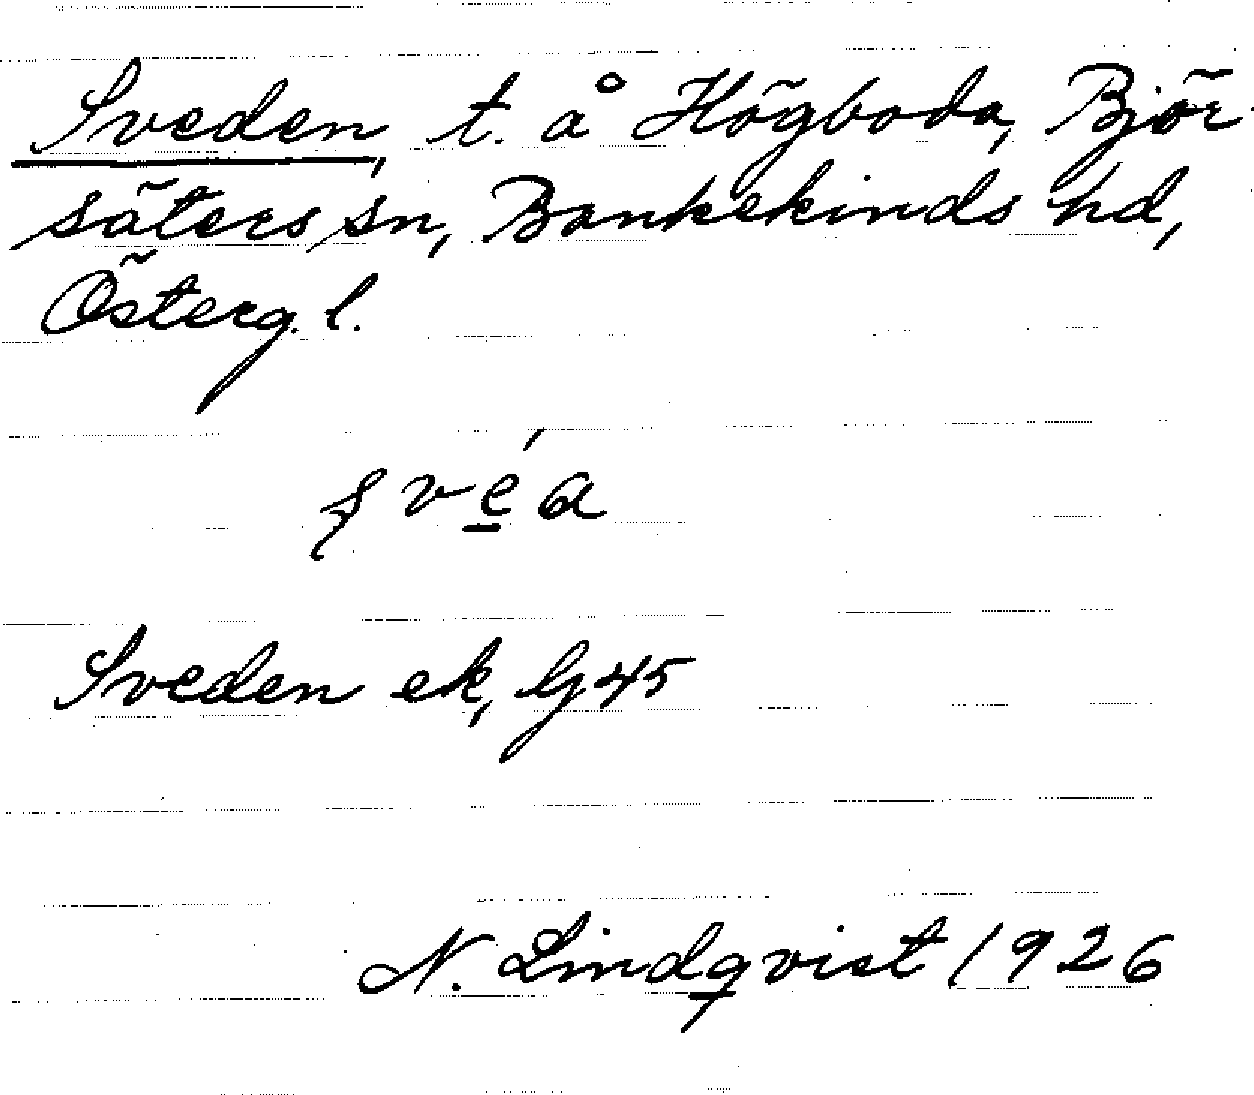 Sveden, t. å Högboda, Björ
säters sn, Bankekinds hd,
Österg. l.
svéa
Sveden ek, G 45
N. Lindqvist 1926